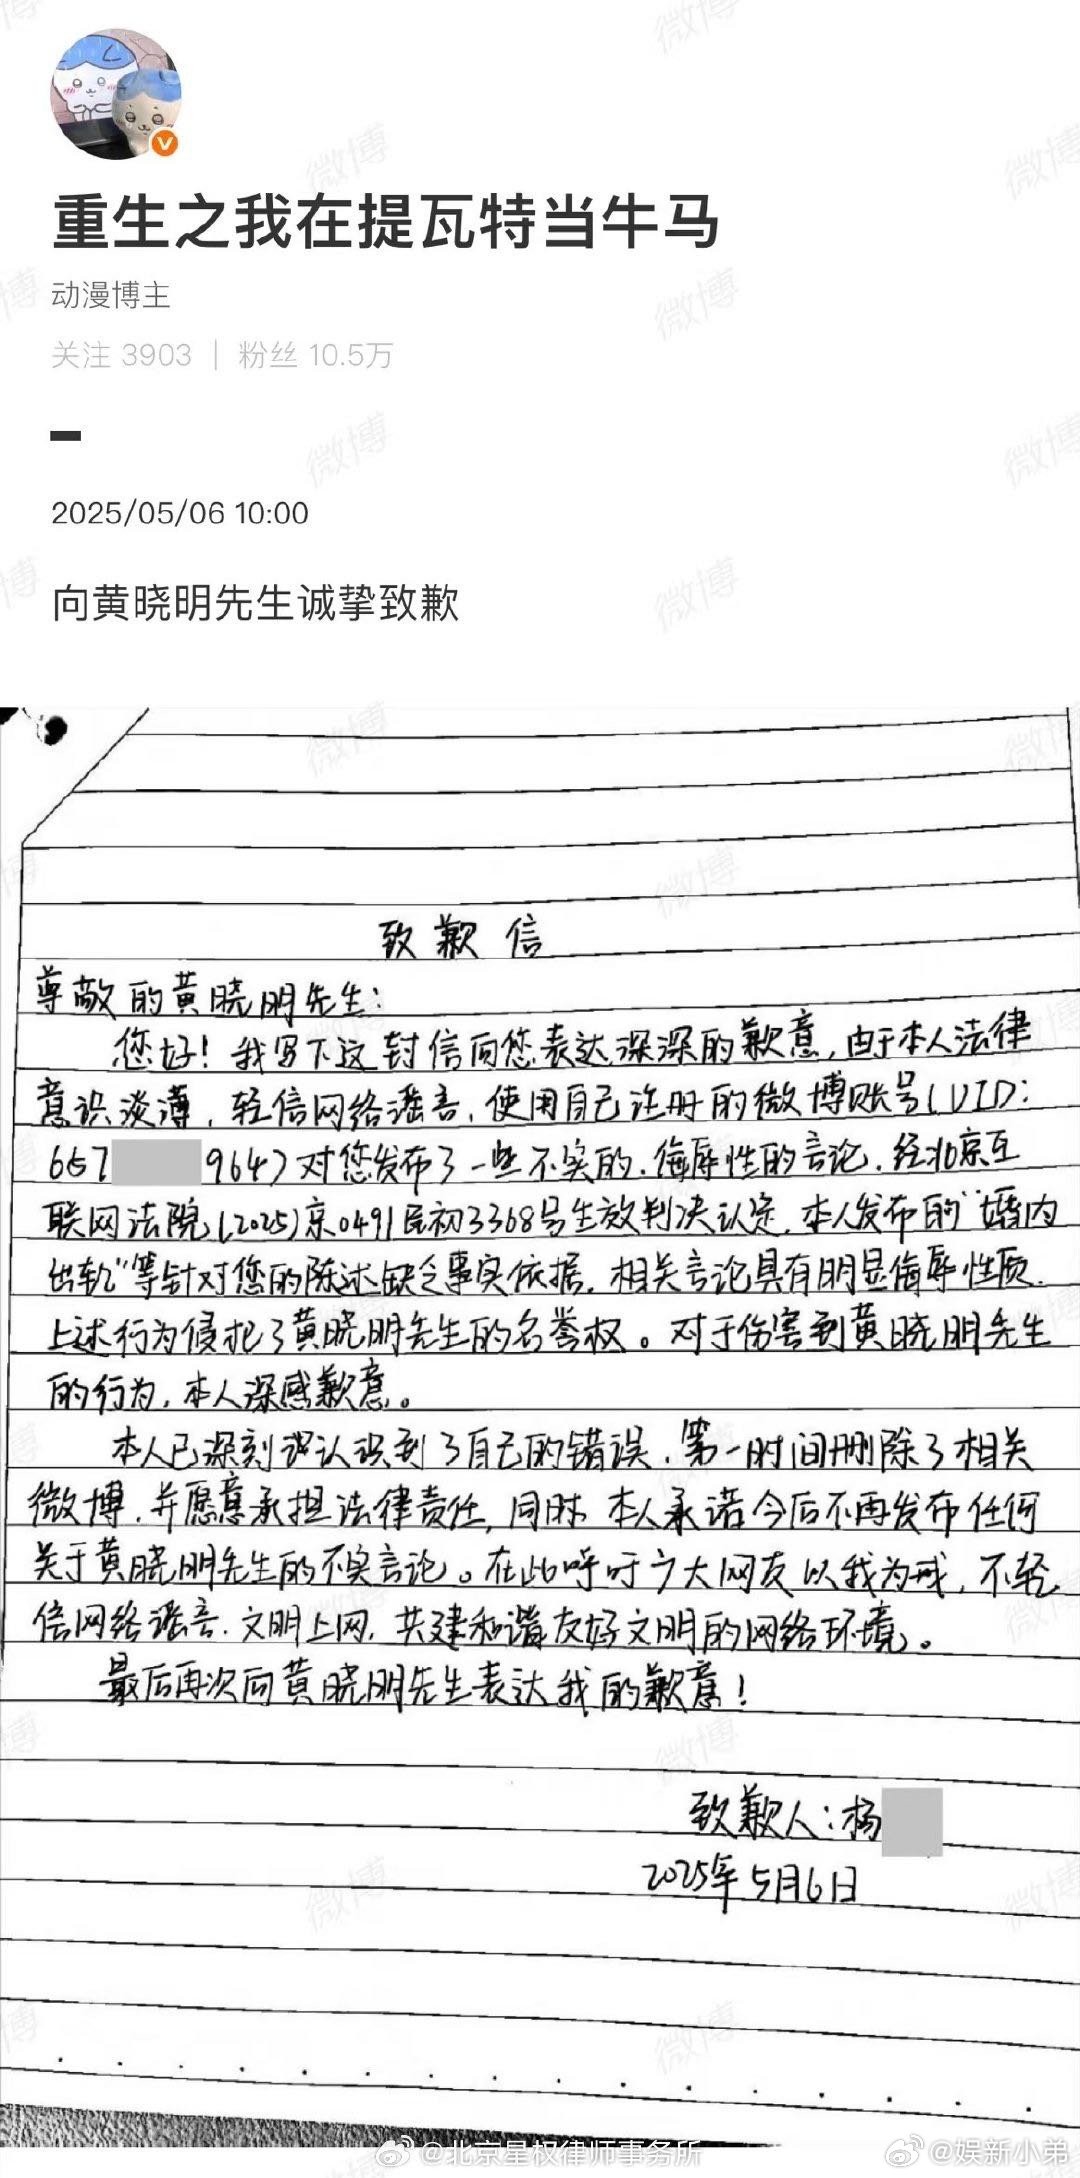 重生之我在提瓦特当牛马
动漫博主
关注 3903 | 粉丝 10.5万
2025/05/06 10:00
向黄晓明先生诚挚致歉
致歉信
尊敬的黄晓明先生：
您好！我写下这封信向您表达深深的歉意，由于本人法律
意识淡薄，轻信网络谣言，使用自己注册的微博账号(UID:
657 9647对您发布了一些不实的、侮辱性的言论，经北京互
联网法院(2025)京0491民初3368号生效判决认定，本人发布的“婚内
出轨”等针对您的陈述缺乏事实依据，相关言论具有明显侮辱性质，
上述行为侵犯了黄晓明先生的名誉权。对于伤害到黄晓明先生
的行为，本人深感歉意。
本人已深刻认识到了自己的错误，第一时间删除了相关
微博，并愿意承担法律责任，同时，本人承诺今后不再发布任何
关于黄晓明先生的不实言论。在此呼吁广大网友以我为戒，不轻
信网络谣言，文明上网，共建和谐友好文明的网络环境。
最后再次向黄晓明先生表达我的歉意！
致歉人：杨
2025年5月6日
@北京星权律师事务所
@娱新小弟
微博